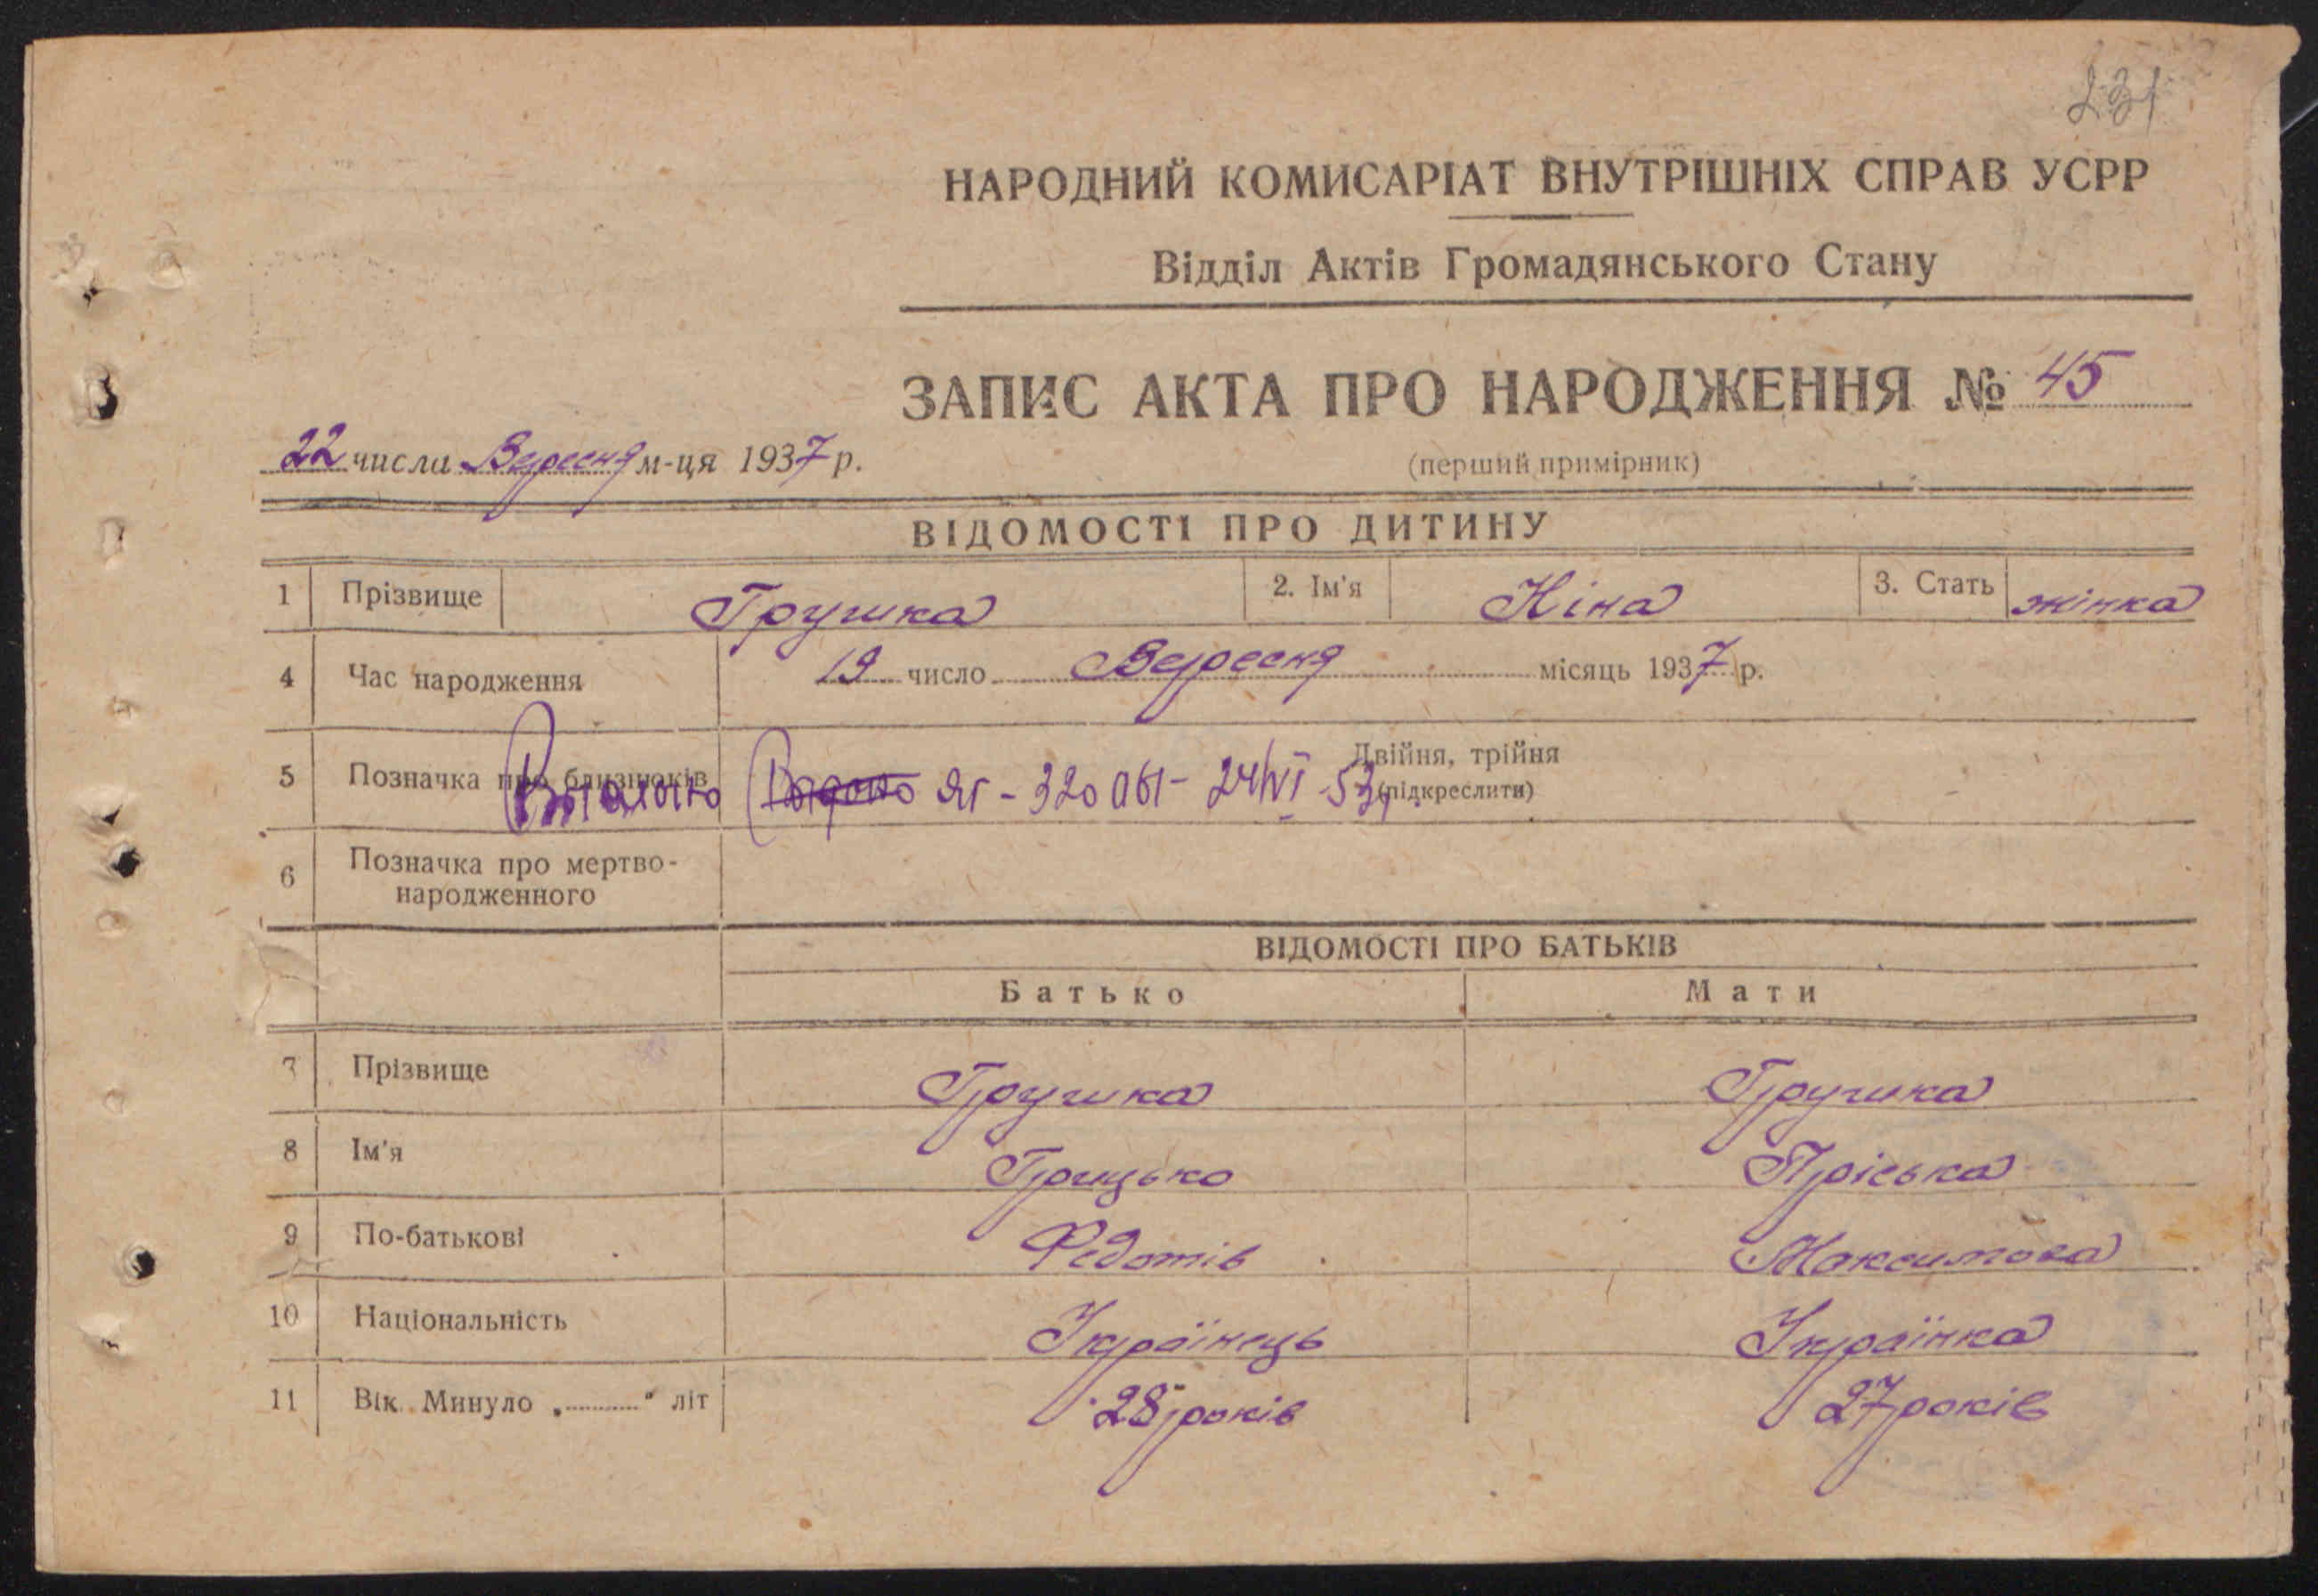 231
НАРОДНИЙ КОМИСАРІАТ ВНУТРІШНІХ СПРАВ УСРР
Відділ Актів Громадянського Стану
ЗАПИС АКТА ПРО НАРОДЖЕННЯ № 45
22 числа Вересня м-ця 1937 р.
(перший примірник)
ВІДОМОСТІ ПРО ДИТИНУ
1 Прізвище Грушка 2. Ім'я Ніна 3. Стать жінка
4 Час народження 19 число Вересня місяць 1937 р.
5 Позначка про близнюків Двійня, трійня
ЯГ - 320061 - 24/VI 53
(підкреслити)
6 Позначка про мертво-
народженного
ВІДОМОСТІ ПРО БАТЬКІВ
Батько Мати
7 Прізвище Грушка Грушка
8 Ім'я Грицько Пріська
9 По-батькові Федотів Максимова
10 Національність Українець Українка
11 Вік. Минуло „ “ літ 28 років 27 років